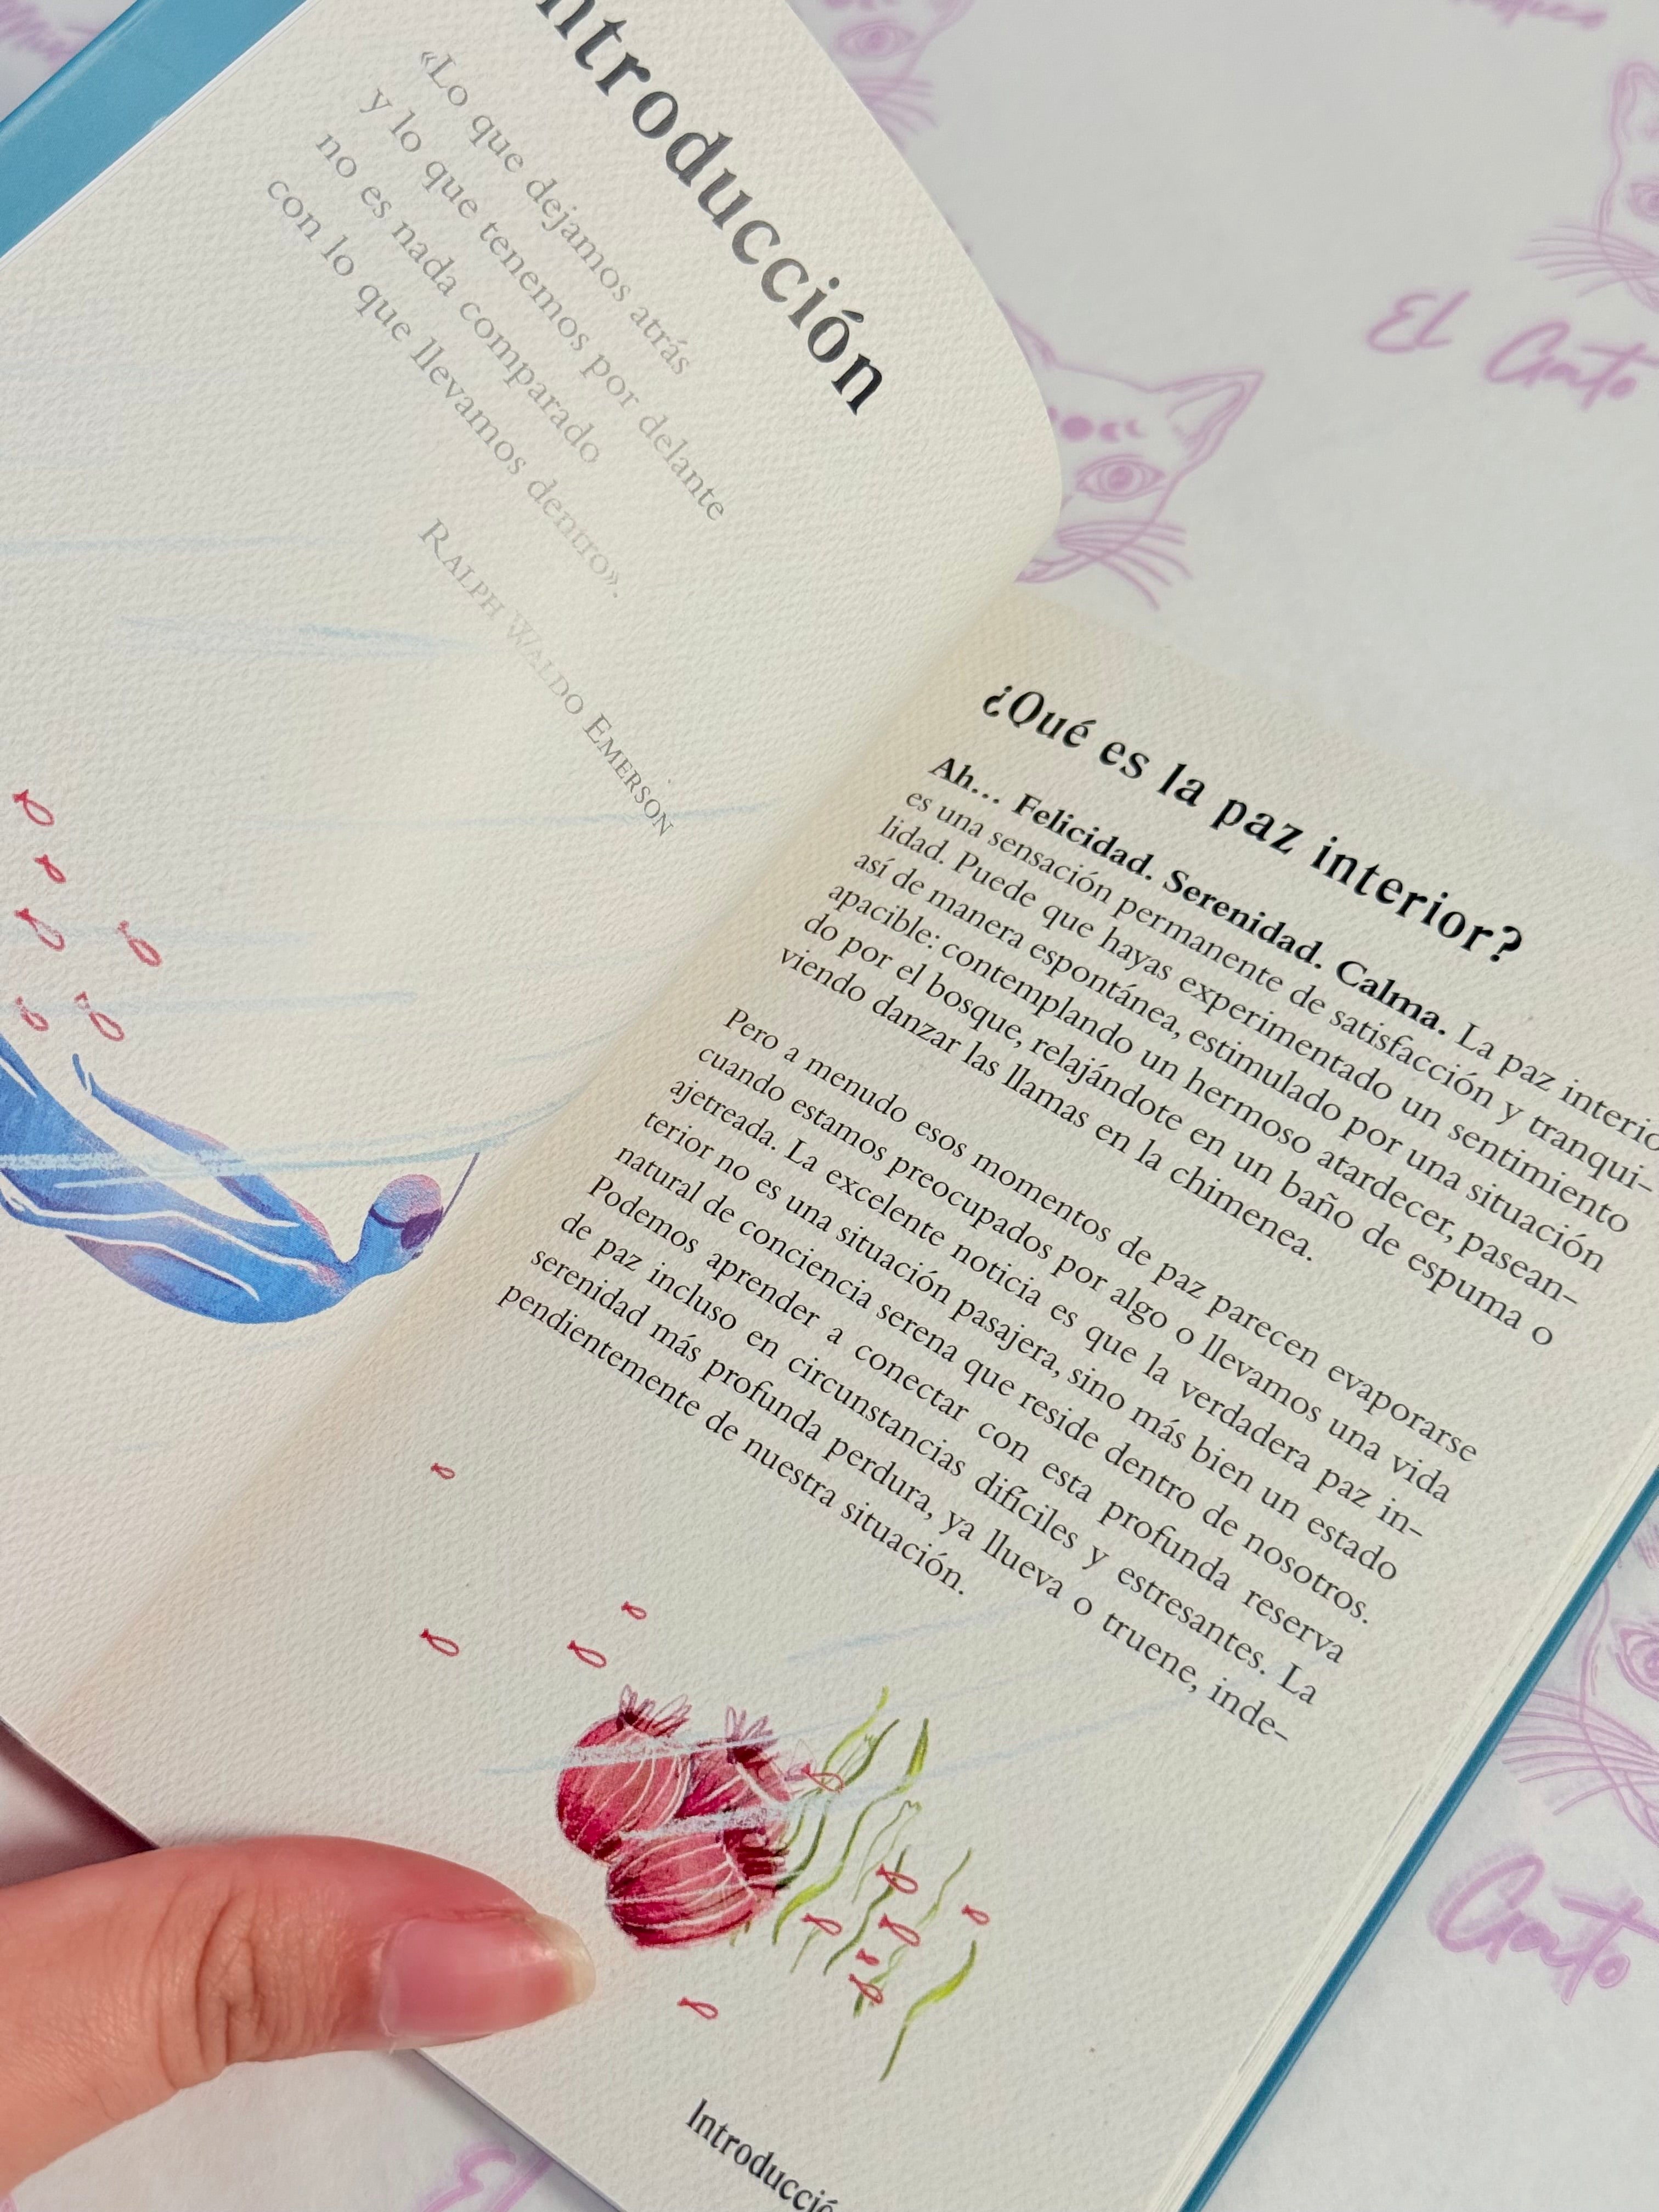 ntroducción
«Lo que dejamos atrás
y lo que tenemos por delante
no es nada comparado
con lo que llevamos dentro».
RALPH WALDO EMERSON
¿Qué es la paz interior?
Ah... Felicidad. Serenidad. Calma. La paz interio
es una sensación permanente de satisfacción y tranqui-
lidad. Puede que hayas experimentado un sentimiento
así de manera espontánea, estimulado por una situación
apacible: contemplando un hermoso atardecer, pasean-
do por el bosque, relajándote en un baño de espuma o
viendo danzar las llamas en la chimenea.
Pero a menudo esos momentos de paz parecen evaporarse
cuando estamos preocupados por algo o llevamos una vida
ajetreada. La excelente noticia es que la verdadera paz in-
terior no es una situación pasajera, sino más bien un estado
natural de conciencia serena que reside dentro de nosotros.
Podemos aprender a conectar con esta profunda reserva
de paz incluso en circunstancias difíciles y estresantes. La
serenidad más profunda perdura, ya llueva o truene, inde-
pendientemente de nuestra situación.
Introducció
El Gato
Gato
El